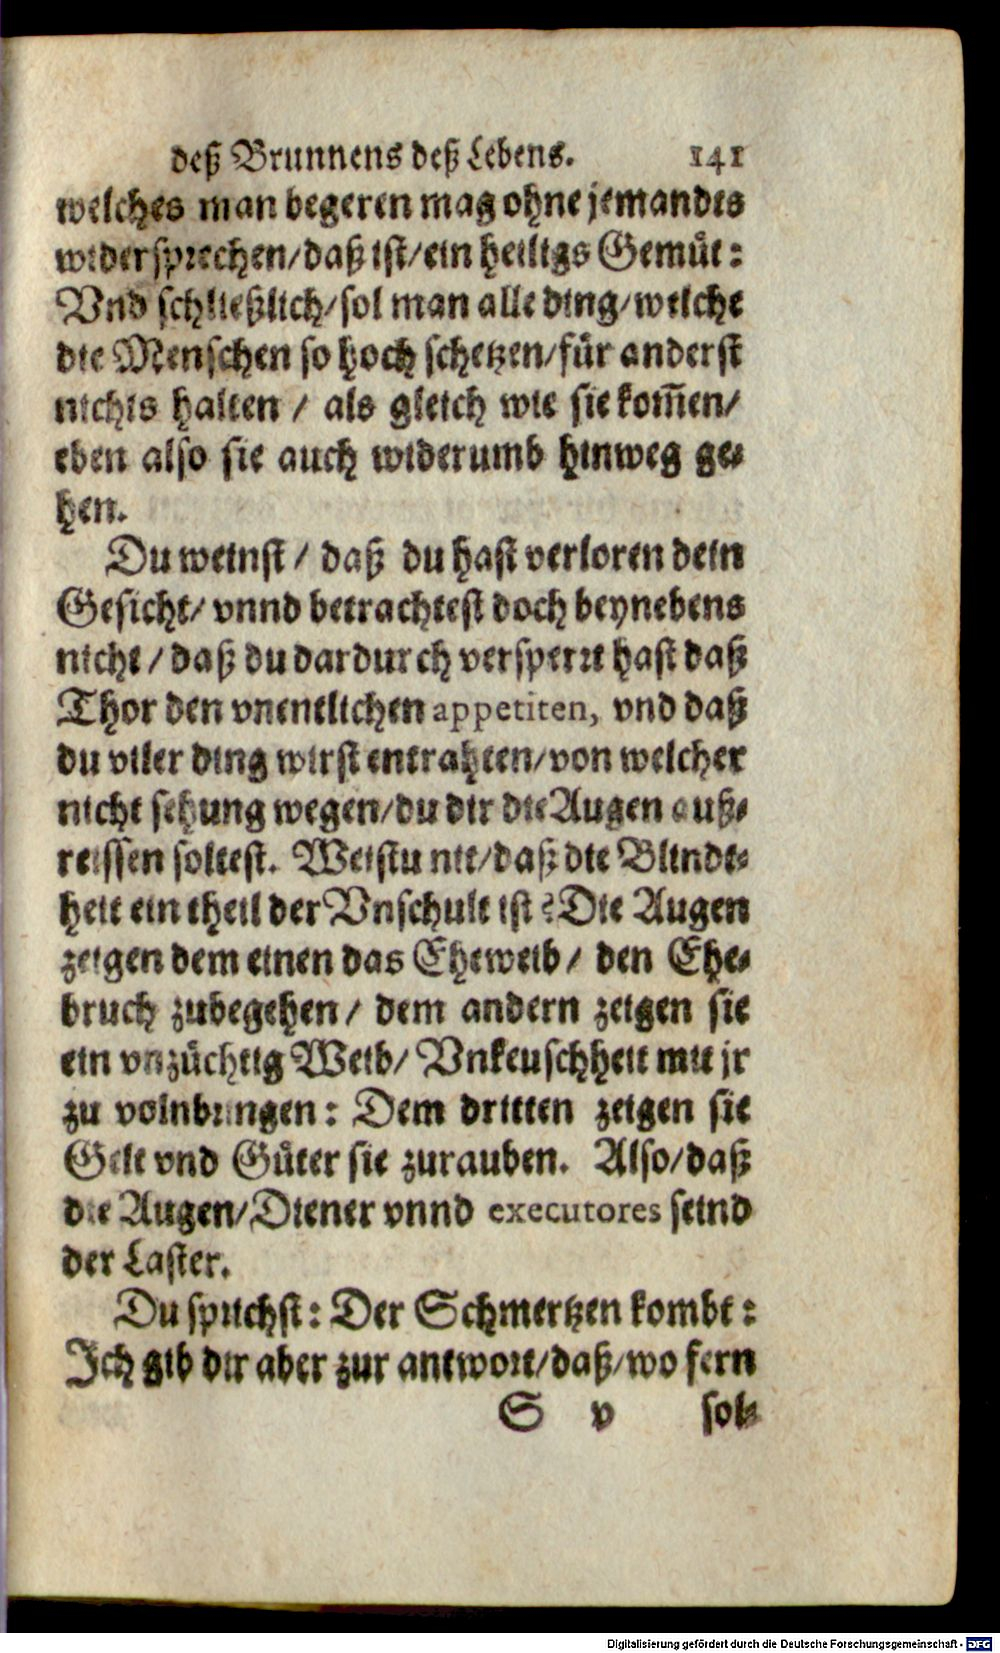 deß Brunnens deß Lebens. 141
welches man begeren mag ohne jemandes
widersprechen/daß ist/ein heiligs Gemüt:
Vnd schließlich/sol man alle ding/welche
die Menschen so hoch schetzen/für anderst
nichts halten / als gleich wie sie kom̃en/
eben also sie auch widerumb hinweg ge-
hen.
Du weinst / daß du hast verloren dein
Gesicht/ vnnd betrachtest doch beynebens
nicht / daß du dardurch versperrt hast daß
Thor den vnentlichen appetiten, vnd daß
du viler ding wirst entrahten/von welcher
nicht sehung wegen/du dir die Augen auß-
reissen soltest. Weistu nit/daß die Blindt-
heit ein theil der Vnschult ist? Die Augen
zeigen dem einen das Eheweib/ den Ehe-
bruch zubegehen/ dem andern zeigen sie
ein vnzüchtig Weib/ Vnkeuschheit mit jr
zu volnbringen: Dem dritten zeigen sie
Gelt vnd Güter sie zurauben. Also/daß
die Augen/Diener vnnd executores seind
der Laster.
Du sprichst: Der Schmertzen kombt:
Ich gib dir aber zur antwort/daß/wo fern
S v sol-
Digitalisierung gefördert durch die Deutsche Forschungsgemeinschaft - DFG